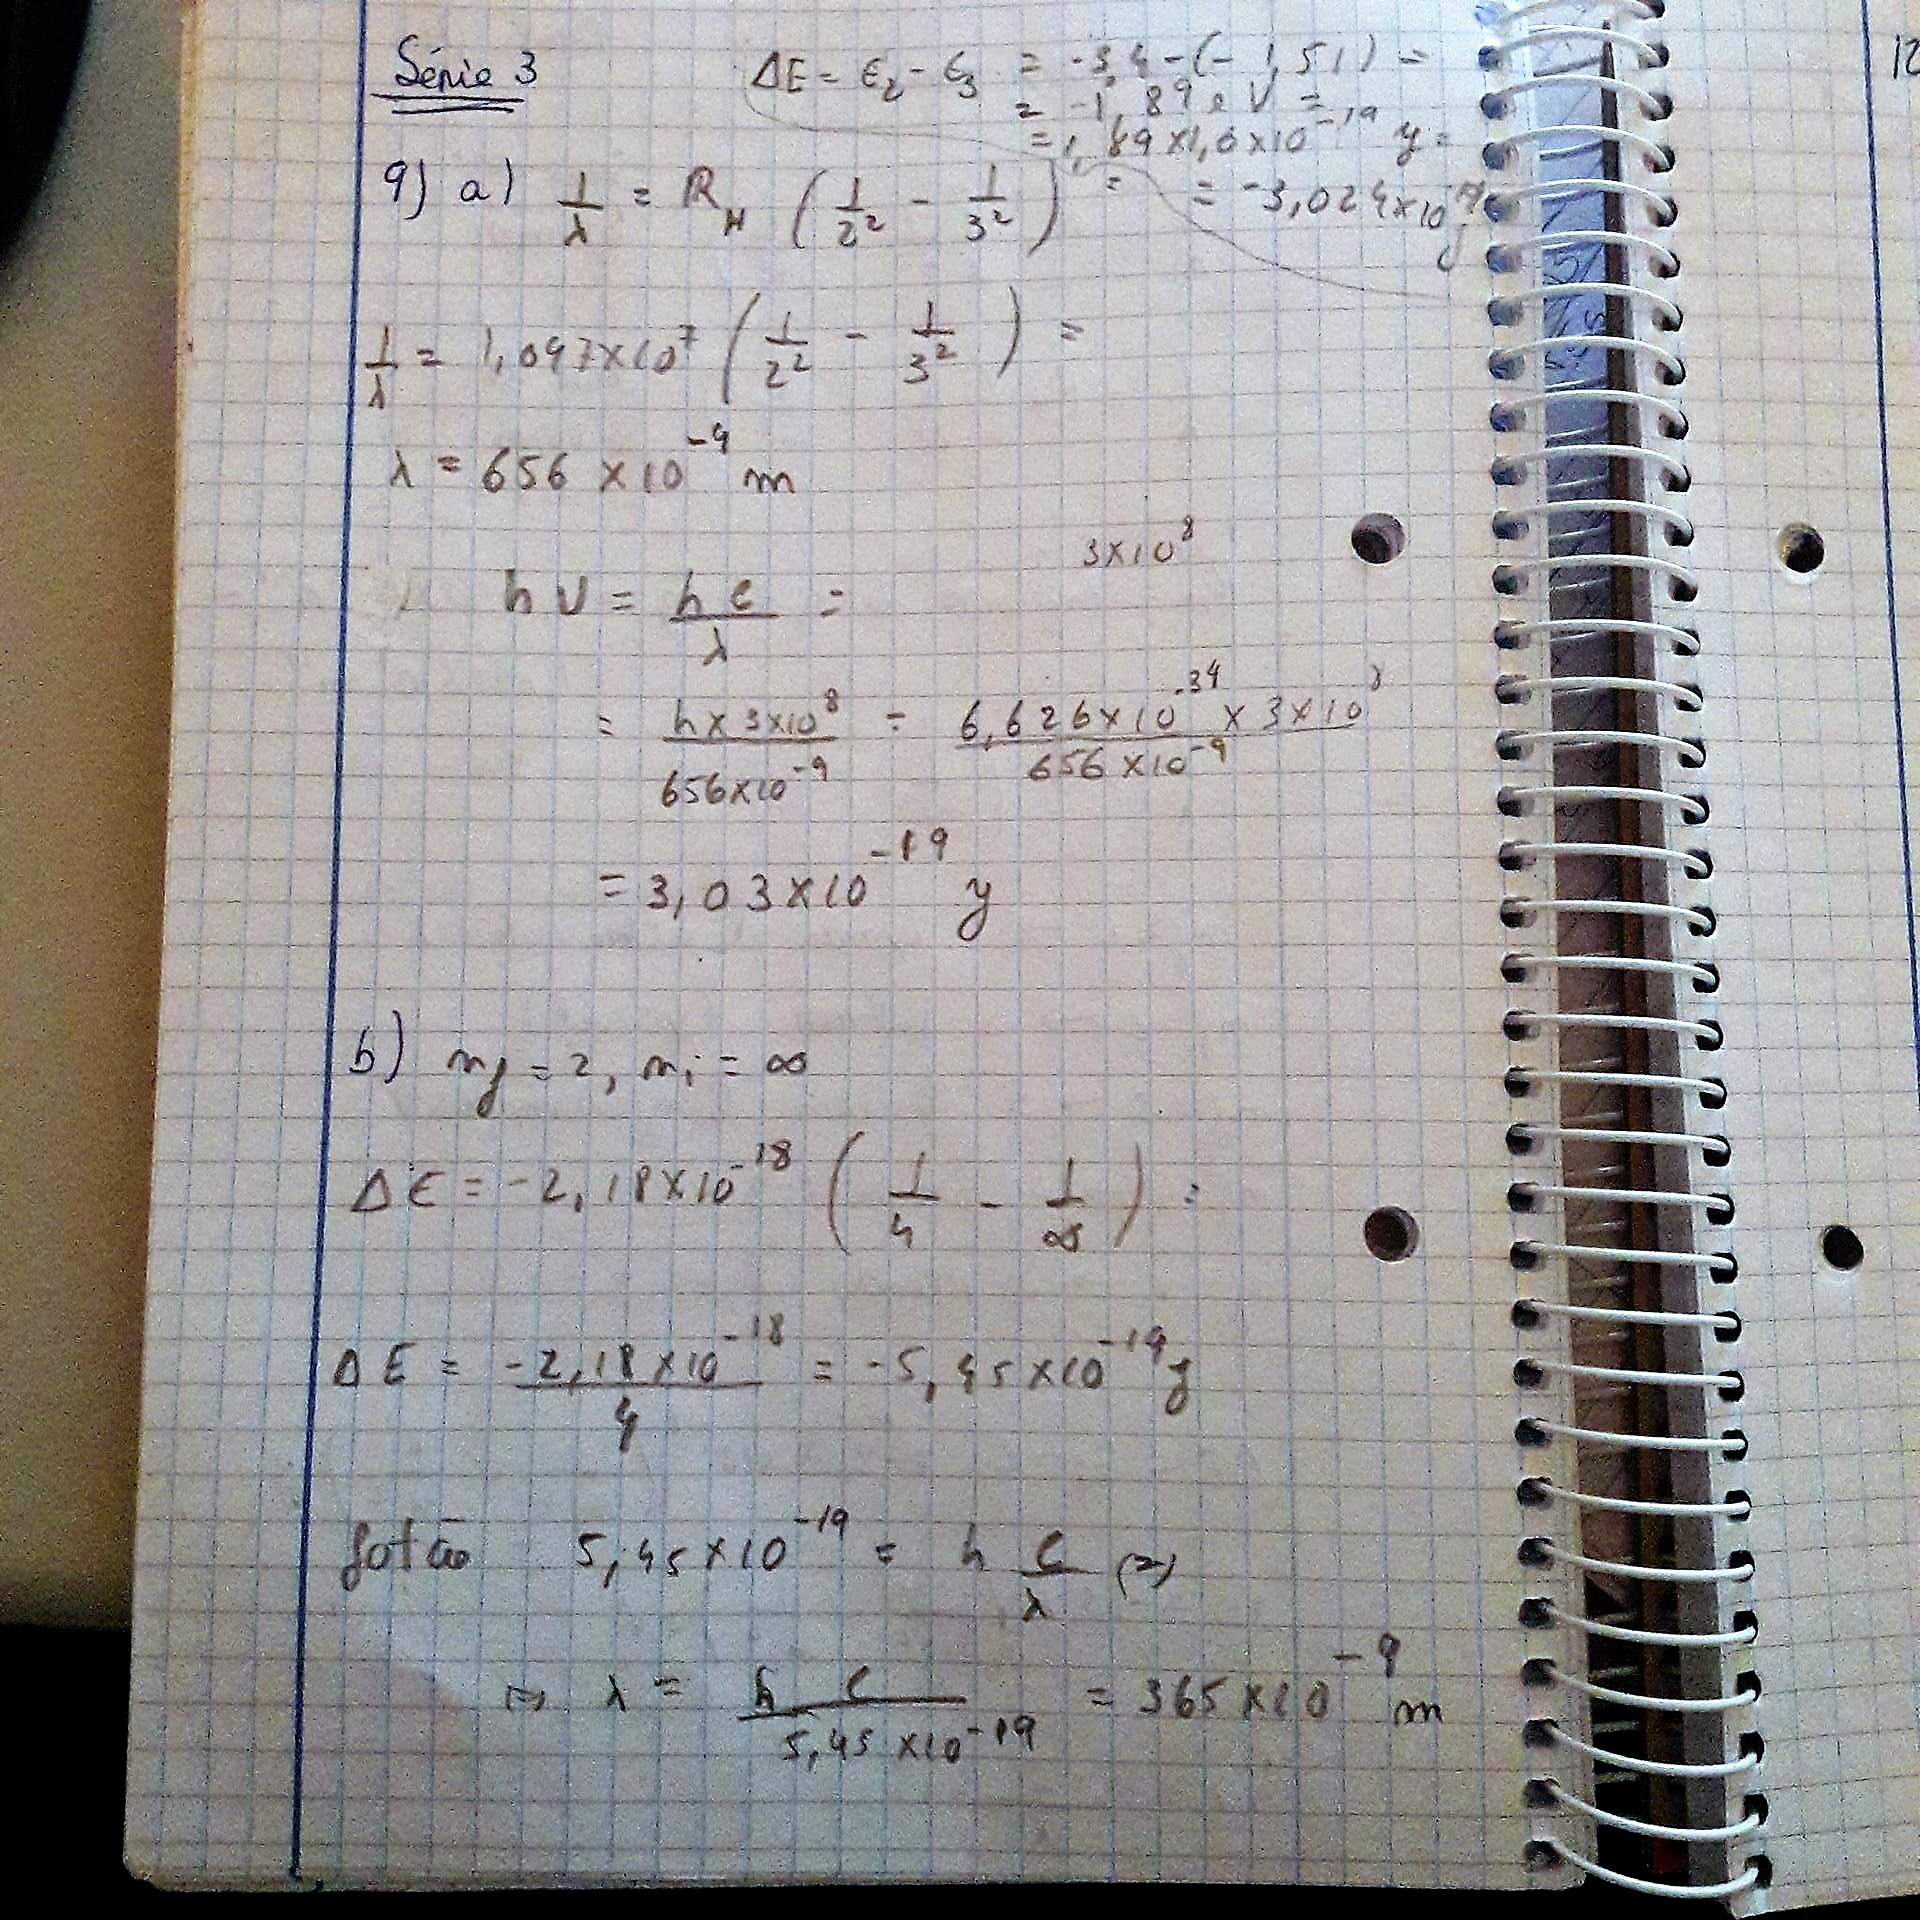 Série 3
ΔE = E₂ - E₃ = -3,4 - (-1,51) =
= -1,89 eV =
= 1,89 x 1,6 x 10⁻¹⁹ J =
= -3,024 x 10⁻¹⁹ J
9) a) 1/λ = R_H (1/2² - 1/3²) =
1/λ = 1,097 x 10⁷ (1/2² - 1/3²) =
λ = 656 x 10⁻⁹ m
3 x 10⁸
hν = hc/λ =
= h x 3 x 10⁸ / 656 x 10⁻⁹ = 6,626 x 10⁻³⁴ x 3 x 10⁸ / 656 x 10⁻⁹
= 3,03 x 10⁻¹⁹ J
b) n_f = 2, n_i = ∞
ΔE = -2,18 x 10⁻¹⁸ (1/4 - 1/∞) =
ΔE = -2,18 x 10⁻¹⁸ / 4 = -5,45 x 10⁻¹⁹ J
fotão 5,45 x 10⁻¹⁹ = h c/λ (=)
(=) λ = h c / 5,45 x 10⁻¹⁹ = 365 x 10⁻⁹ m
12